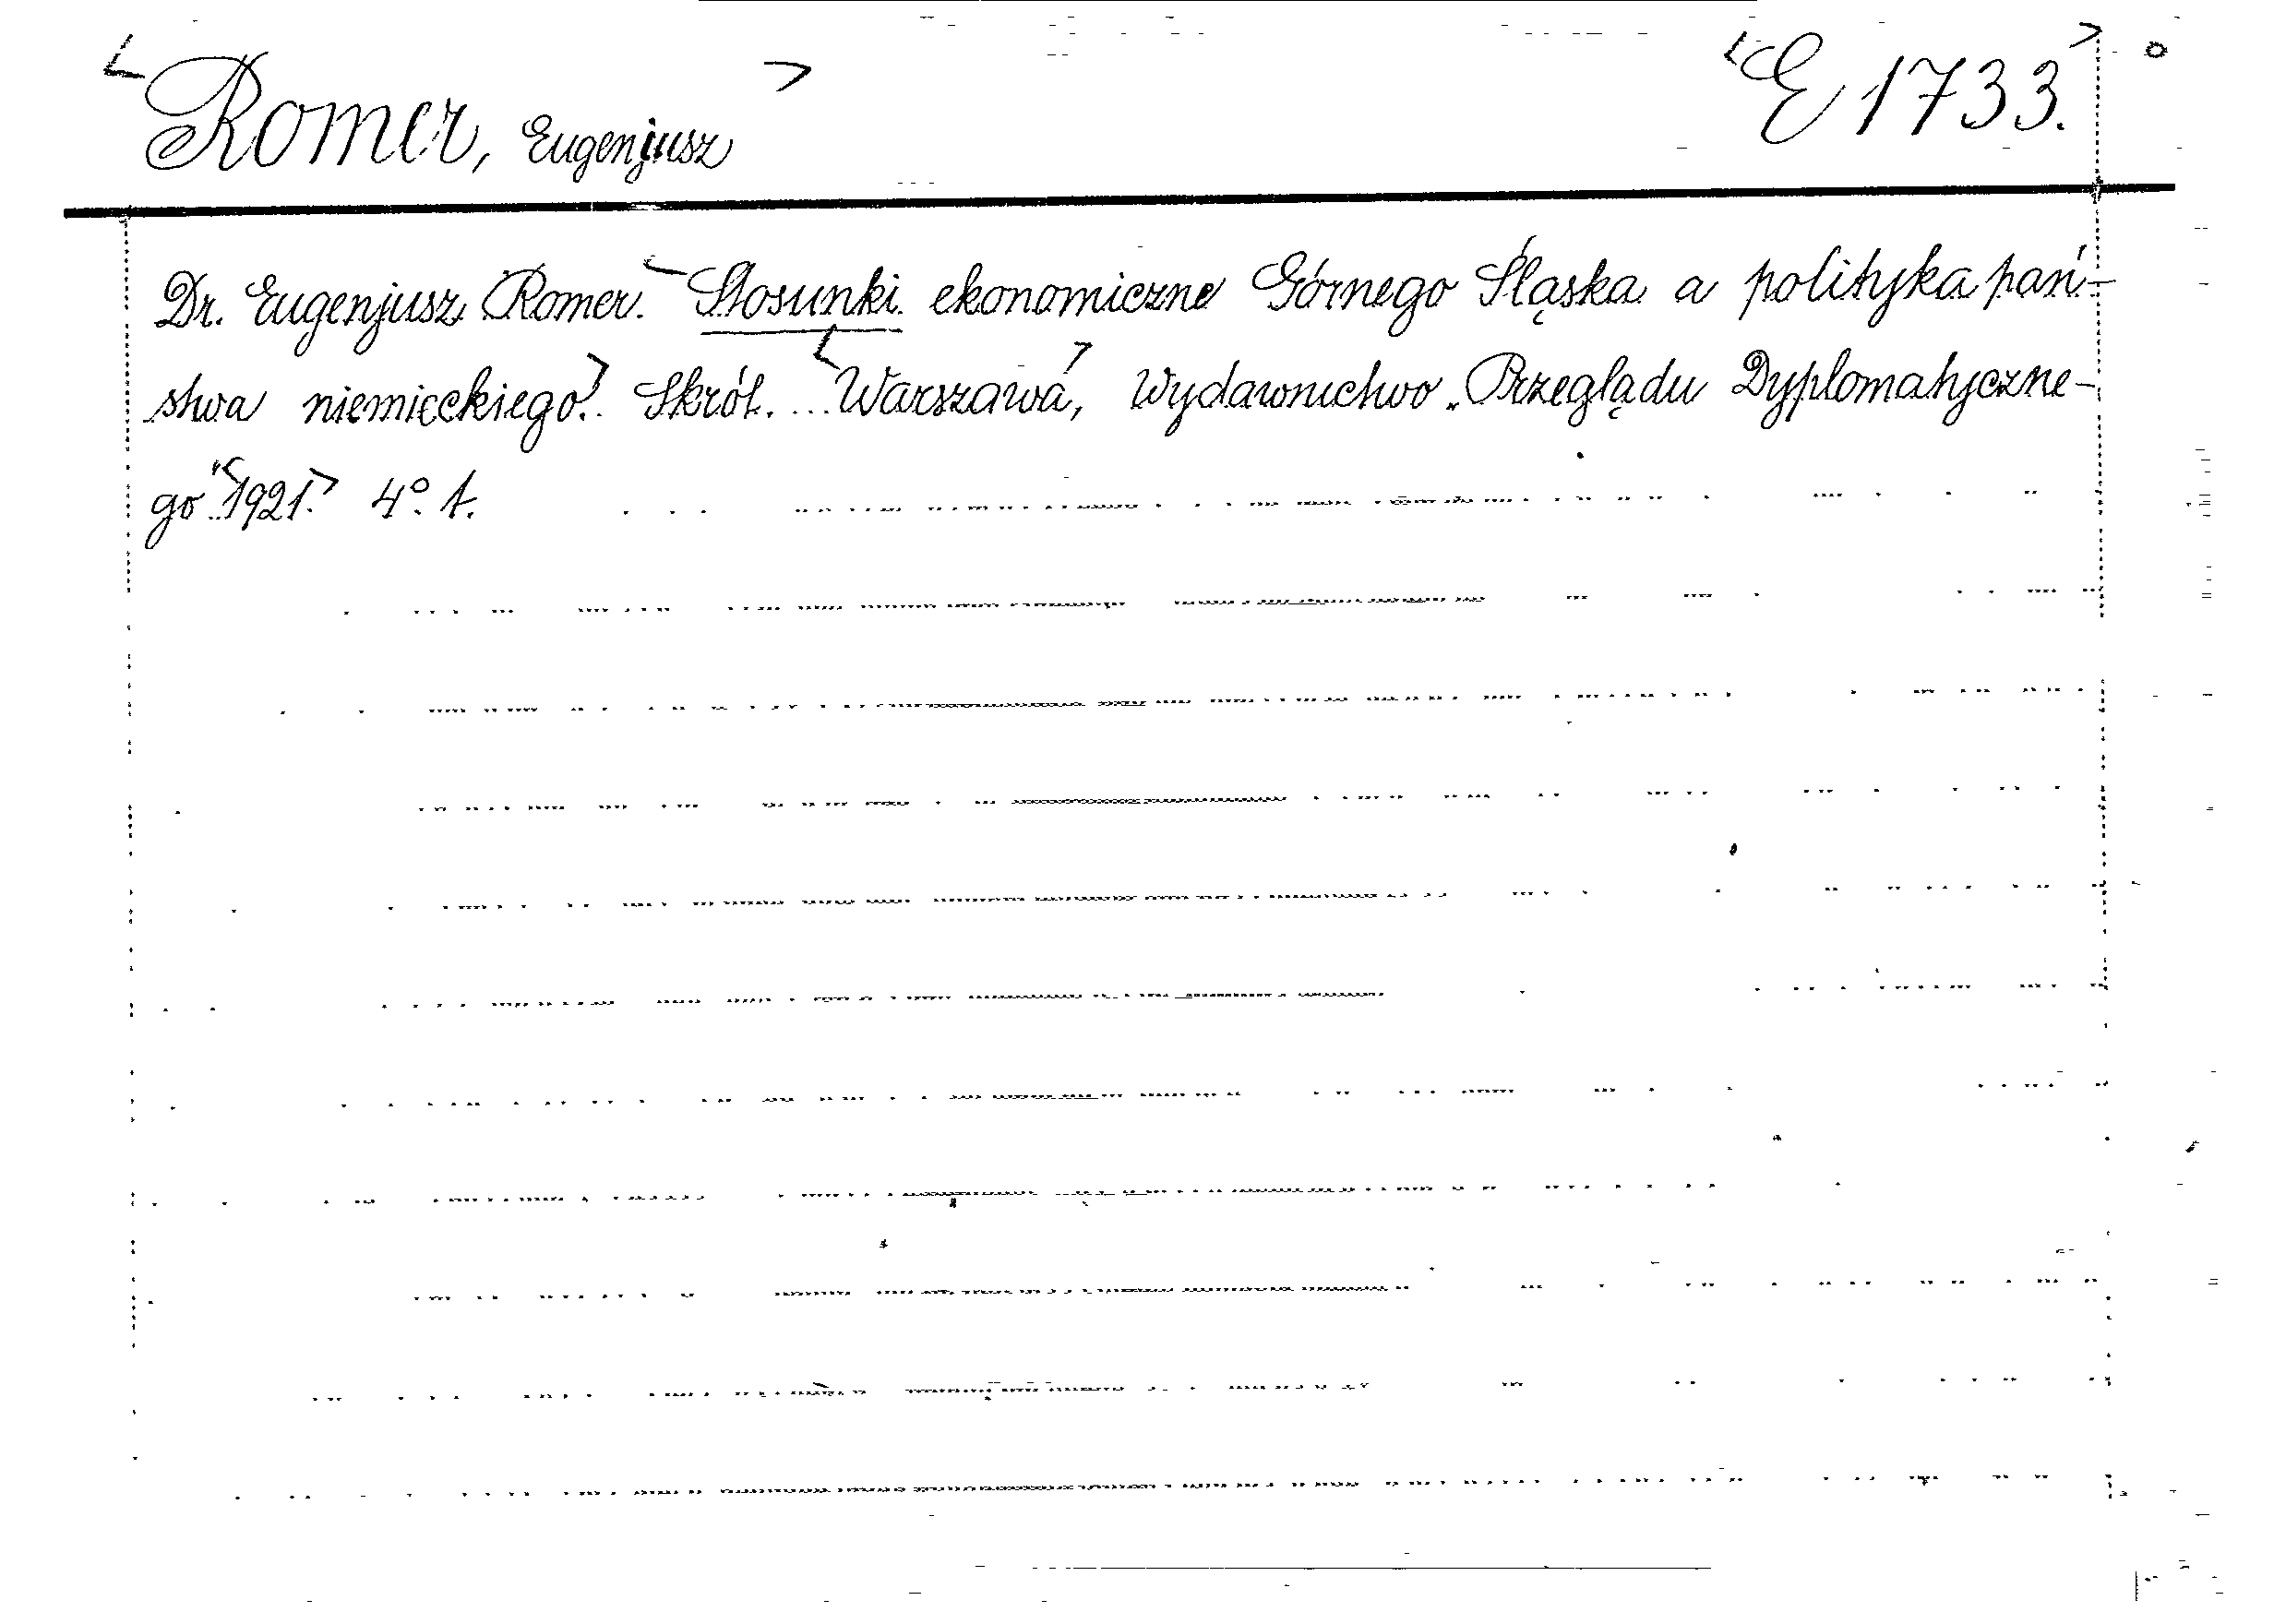 Romer, Eugenjusz E 1733.
Dr. Eugenjusz Romer. Stosunki ekonomiczne Górnego Śląska a polityka pań-
stwa niemieckiego. Skrót. Warszawa, Wydawnictwo „Przeglądu Dyplomatyczne-
go" 1921. 4°. t.